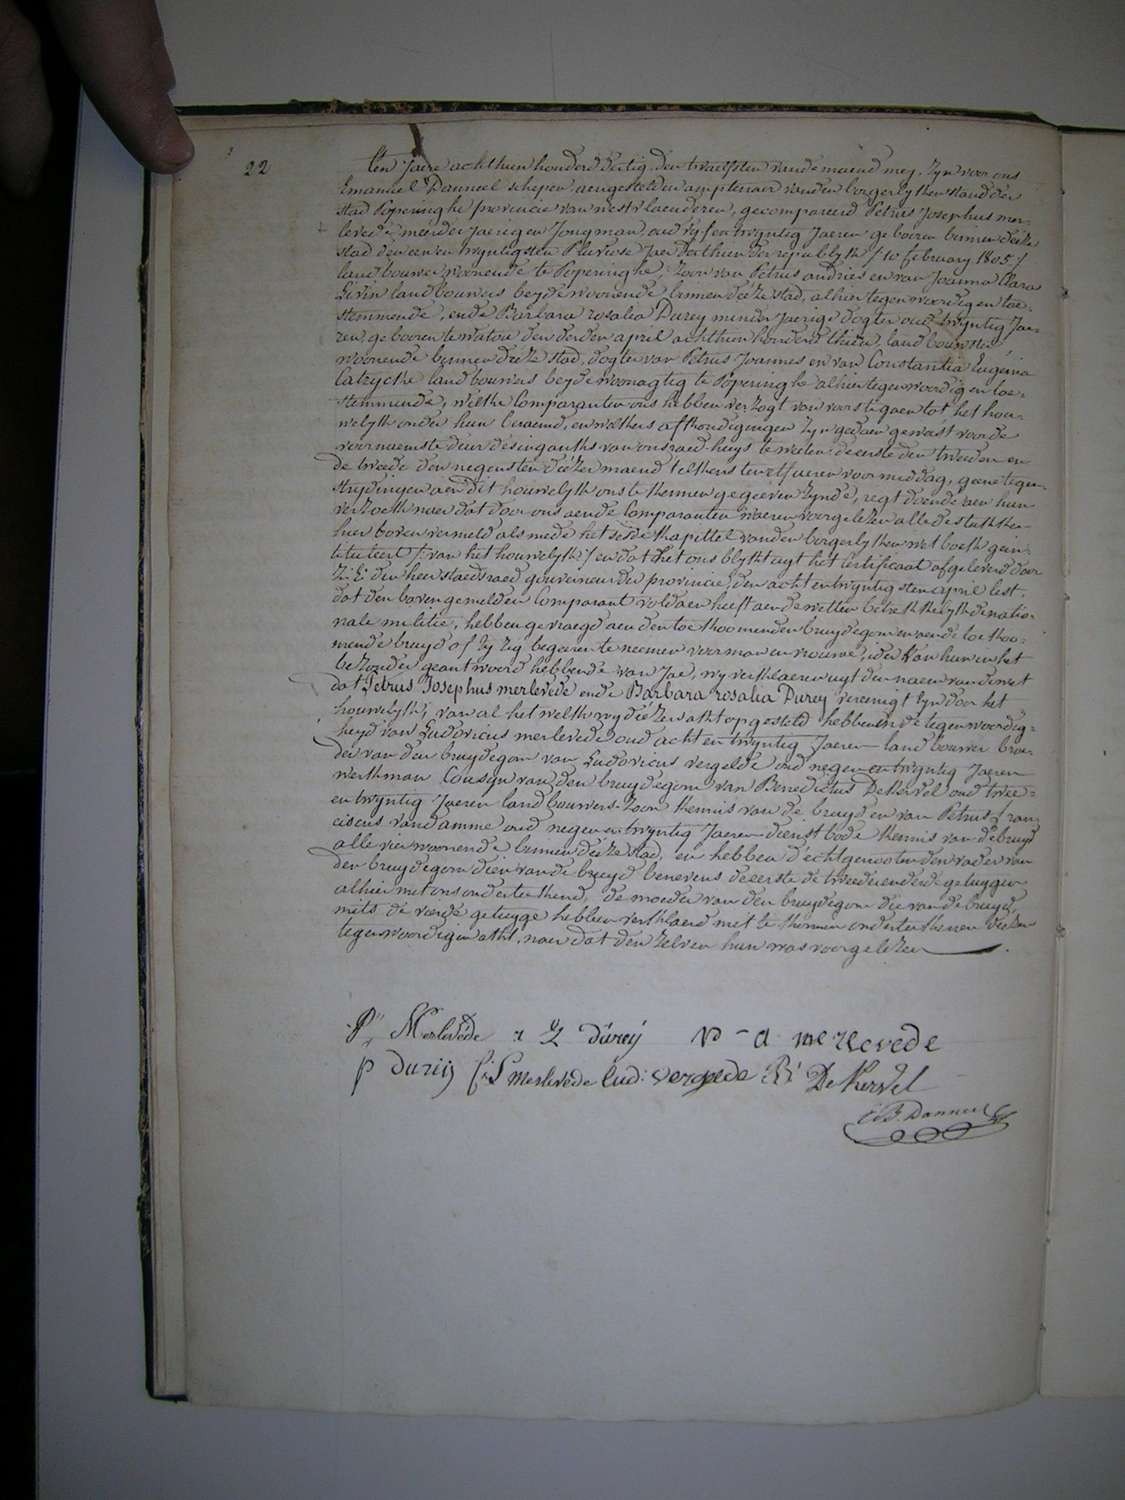 22
ten Jaere achthien honderd dertig, den twaelfsten vande maend mey. Zyn voor ons
Emanuel Danneel schepen aengestelden amptenaer van den borgerlyken stand der
stad Poperinghe provincie van westvlaenderen, gecompareerd Petrus Josephus mer-
levede meerder jaerigen Jongman, oud vyf en twyntig Jaeren geboren binnen deeze
stad den een en twyntigsten Pluviose Jaer derthien der republyk / 10 february 1805 /
landbouwer woonende te Poperinghe, zoon van Petrus andries en van Joanna Clara
Livin landbouwers beyde woonende binnen déeze stad, alhier tegenwoordig en toe-
stemmende, ende Barbara rosalia Durey minder jaerige dogter oud twyntig Jae-
ren, geboren te watou den derden april achthien honderd thien, landbouwster
woonende binnen deeze stad, dogter van Petrus Joannes en van Constantia Eugenia
Catrycke landbouwers beyde woonagtig te Poperinghe alhier tegenwoordig en toe-
stemmende, welke Comparanten ons hebben verzogt van voors te gaen tot het hou-
welyk onder hun beraemd, en welkers afkondigingen zyn gedaen geweest voor de
voornaemste deur des inganks van ons raed-huys te weten: de eerste den tweeden en
de tweede den negensten déezer maend telkens ten elf ueren voormiddag, geene tegen-
strydingen aen dit houwelyk ons te kennen gegeeven zynde, regt doende aen hun
verzoek naer dat door ons aen de Comparanten waeren voorgelezen alle de stukken
hier boven vermeld als mede het sesde kapittel van den borgerlyken wet boek gein-
tituleert /: van het houwelyk :/ en dat het ons blykt uyt het Certificaat afgeleverd door
Z: E: den heer staedsraed gouverneur der provincie, den acht en twyntigsten april lest,
dat den boven gemelden Comparant voldaen heeft aen de wetten betrekkelyk de natio-
nale militie, hebben gevraegd aen den toekoomenden bruydegom en aen de toekoo-
mende bruyd of zy zig begeeren te neemen voor man en vrouwe, ider van hun in het
bezonder geantwoord hebbende van Jae, wy verklaeren uyt den naem van de wet
dat Petrus Josephus merlevede ende Barbara rosalia Durey vereenigt zyn door het
houwelyk, van al het welk wy déezen akt opgesteld hebben in de tegenwoordig-
heyd van Ludovicus merlevede oud acht en twyntig Jaeren landbouwer broe-
der van den bruydegom van Ludovicus vergelde oud negen en twyntig Jaeren
werkman Cousyn van den bruydegom van Benedictus DeKervel oud twee-
en twyntig Jaeren landbouwers-zoon kennis van de bruyd en van Petrus fran-
ciscus vandamme oud negen en twyntig Jaeren dienstbode kennis van de bruyd
alle vier woonende binnen deeze stad, en hebben d'echtgenooten den vader van
den bruydegom dien van de bruyd benevens de eerste de tweede en derde getuygen
alhier met ons onderteekend, de moeder van den bruydegom die van de bruyd
mits de vierde getuyge hebben verklaerd niet te konnen onderteekenen deezen
tegenwoordigen akt, naer dat den zelven hun was voorgelezen.
Pr Merlevede r durey P A merlevede
p durey L merlevede Lud: vergelde B: De Kervel
E B: Danneel